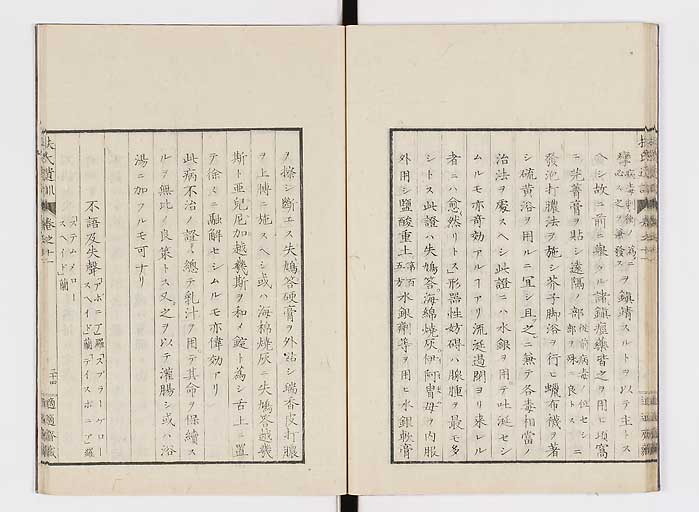 攣病毒刺衝ノ為ニヲ鎮靖スルトヲ以テ主トス
必ス之ヲ兼発ス
会シ故ニ前ニ挙クル諸鎮痙薬皆之ヲ用ヒ項窩
ニ芫菁膏ヲ貼シ遠隔ノ部
発泡打膿法ヲ施シ芥子脚浴ヲ行ヒ蠟布機ヲ著
シ硫黄浴ヲ用ルニ宜シ且之ニ無テ各毒相當ノ
治法ヲ處スヘシ此證ニハ水銀ヲ用テ吐涎セシ
ムルモ亦奇効アルヿアリ流涎過閉ヨリ来レル
者ニハ愈然リトス形器性妨碍ハ腺腫ヲ最モ多
シトス此證ハ失鳩答海綿焼灰伊阿胄母ヲ内服
外用シ鹽酸重土水銀剤等ヲ用ヒ水銀軟膏
ヲ擦シ断エス失鳩答硬膏ヲ外貼シ瑞香皮打膿
ヲ上膊ニ施スヘシ或ハ海綿焼灰ニ失鳩答越幾
斯ト亜兒尼加越幾斯ヲ和メ錠ト為シ舌上ニ置
テ徐々ニ融解セシムルモ亦偉効アリ
此病不治ノ證ハ總テ乳汁ヲ用テ其命ヲ保續ス
ルヲ無比ノ良策トス又之ヲ以テ灌腸シ或ハ浴
湯ニ加フルモ可ナリ
不語及失聲
扶氏遺訓 巻之十二
二十四
適適齋藏